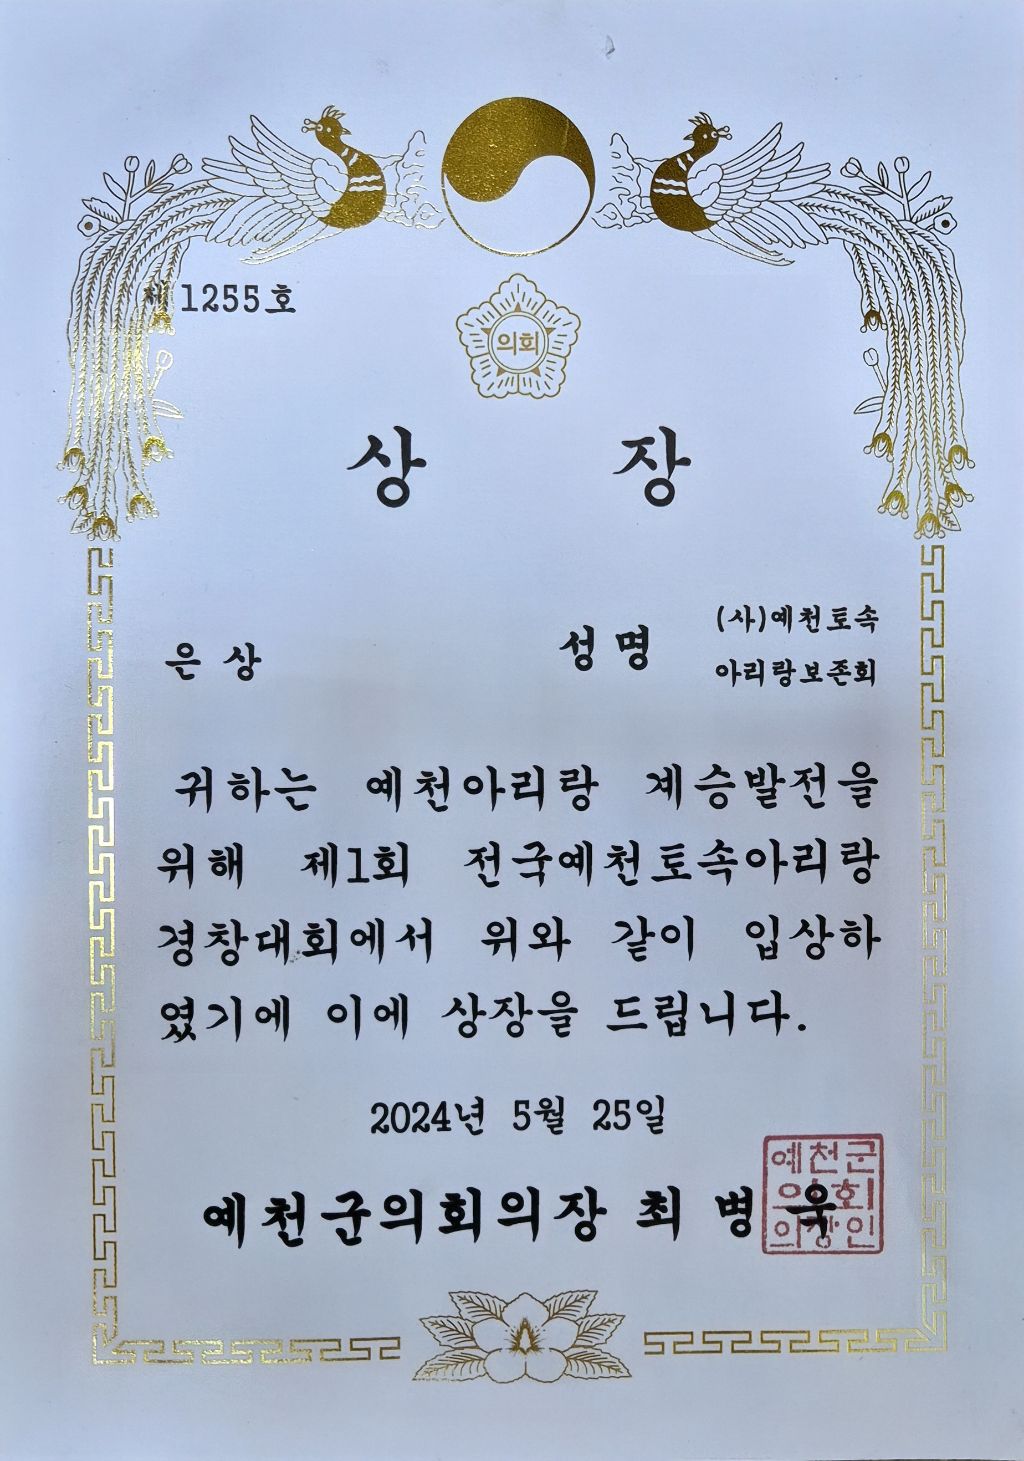 제1255호
의회
상 장
은 상
성 명 (사)예천토속
아리랑보존회
귀하는 예천아리랑 계승발전을
위해 제1회 전국예천토속아리랑
경창대회에서 위와 같이 입상하
였기에 이에 상장을 드립니다.
2024년 5월 25일
예천군의회의장 최 병 욱
예천군
의회
의장인